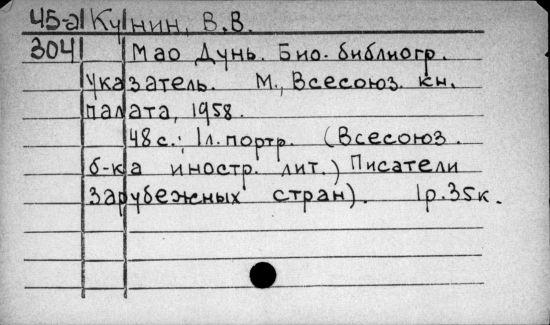 45-а Кунин, В.В.
3041 Мао Дунь. Био-библиогр.
указатель. М., Всесоюз. кн.
палата, 1958.
48 с.; 1 л. портр. (Всесоюз.
б-ка иностр. лит.) Писатели
зарубежных стран). 1р.35к.